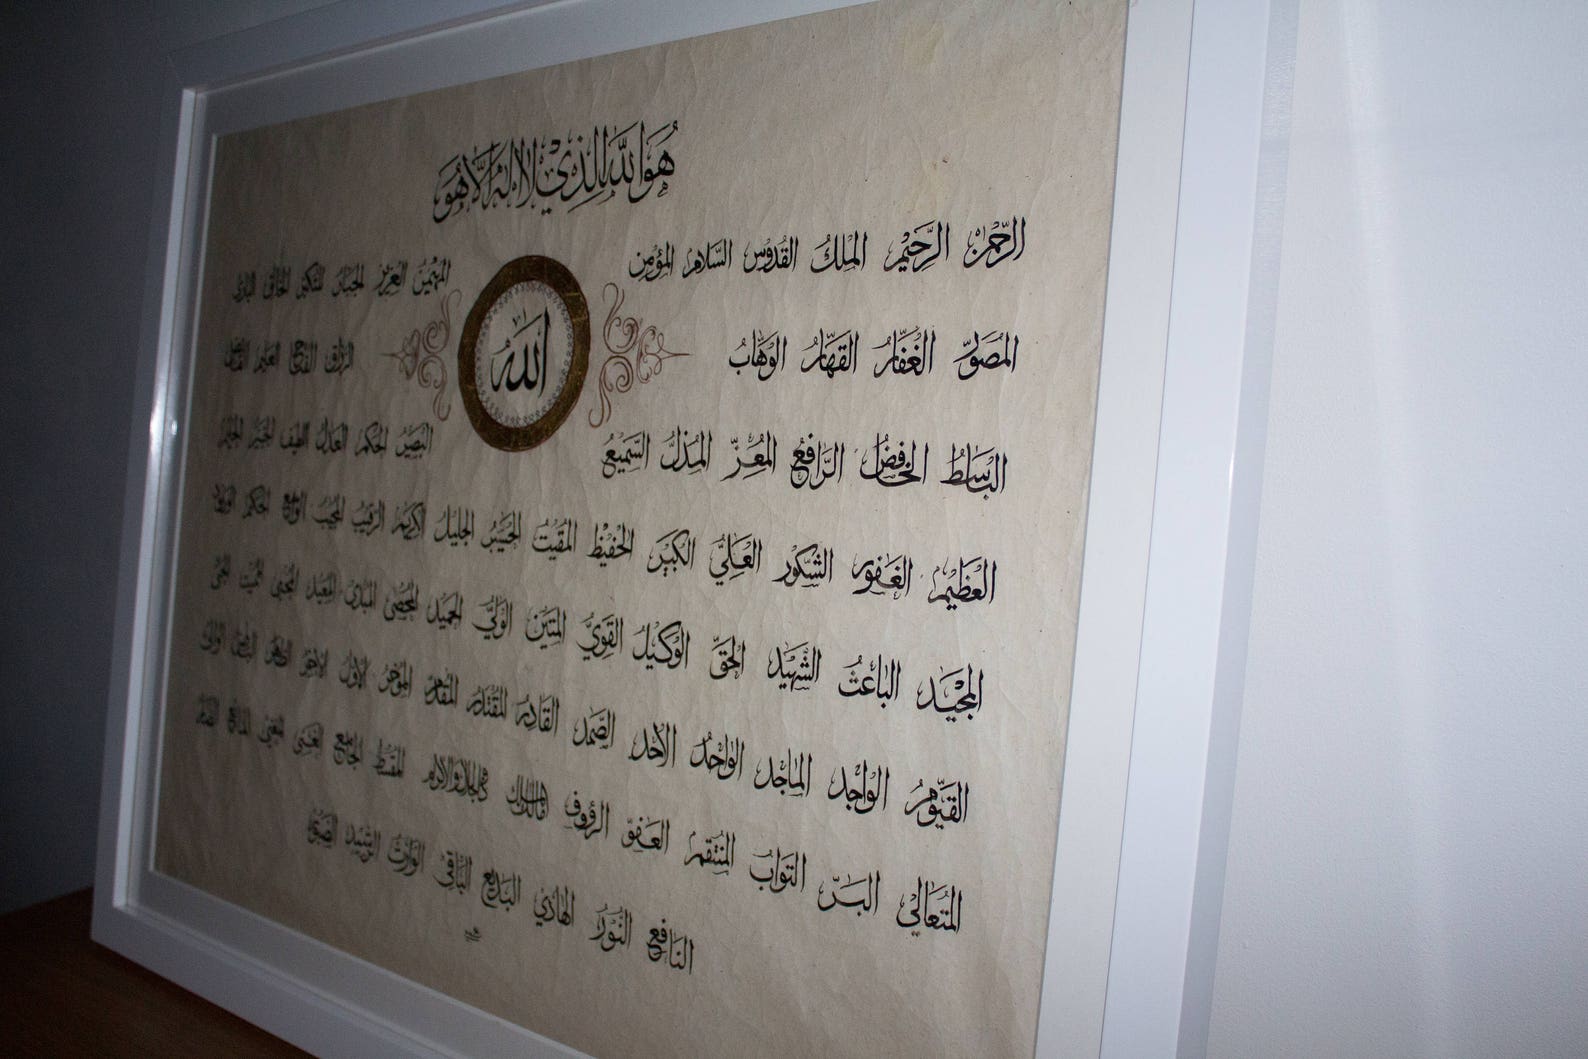 هُوَ اللهُ الَّذِي لَا إِلٰهَ إِلَّا هُوَ
الرَّحْمٰنُ الرَّحِيْمُ الْمَلِكُ الْقُدُّوْسُ السَّلَامُ الْمُؤْمِنُ الْمُهَيْمِنُ الْعَزِيْزُ الْجَبَّارُ الْمُتَكَبِّرُ الْخَالِقُ الْبَارِئُ
اللهُ
الْمُصَوِّرُ الْغَفَّارُ الْقَهَّارُ الْوَهَّابُ الرَّزَّاقُ الْفَتَّاحُ الْعَلِيْمُ الْقَابِضُ
الْبَاسِطُ الْخَافِضُ الرَّافِعُ الْمُعِزُّ الْمُذِلُّ السَّمِيْعُ الْبَصِيْرُ الْحَكَمُ الْعَدْلُ اللَّطِيْفُ الْخَبِيْرُ الْحَلِيْمُ
الْعَظِيْمُ الْغَفُوْرُ الشَّكُوْرُ الْعَلِيُّ الْكَبِيْرُ الْحَفِيْظُ الْمُقِيْتُ الْحَسِيْبُ الْجَلِيْلُ الْكَرِيْمُ الرَّقِيْبُ الْمُجِيْبُ الْوَاسِعُ الْحَكِيْمُ الْوَدُوْدُ
الْمَجِيْدُ الْبَاعِثُ الشَّهِيْدُ الْحَقُّ الْوَكِيْلُ الْقَوِيُّ الْمَتِيْنُ الْوَلِيُّ الْحَمِيْدُ الْمُحْصِي الْمُبْدِئُ الْمُعِيْدُ الْمُحْيِي الْمُمِيْتُ الْحَيُّ
الْقَيُّوْمُ الْوَاجِدُ الْمَاجِدُ الْوَاحِدُ الْاَحَدُ الصَّمَدُ الْقَادِرُ الْمُقْتَدِرُ الْمُقَدِّمُ الْمُؤَخِّرُ الْاَوَّلُ الْاٰخِرُ الظَّاهِرُ الْبَاطِنُ الْوَالِي
الْمُتَعَالِي الْبَرُّ التَّوَّابُ الْمُنْتَقِمُ الْعَفُوُّ الرَّؤُوْفُ مَالِكُ الْمُلْكِ ذُو الْجَلَالِ وَالْاِكْرَامِ الْمُقْسِطُ الْجَامِعُ الْغَنِيُّ الْمُغْنِي الْمَانِعُ الضَّارُّ
النَّافِعُ النُّوْرُ الْهَادِي الْبَدِيْعُ الْبَاقِي الْوَارِثُ الرَّشِيْدُ الصَّبُوْرُ